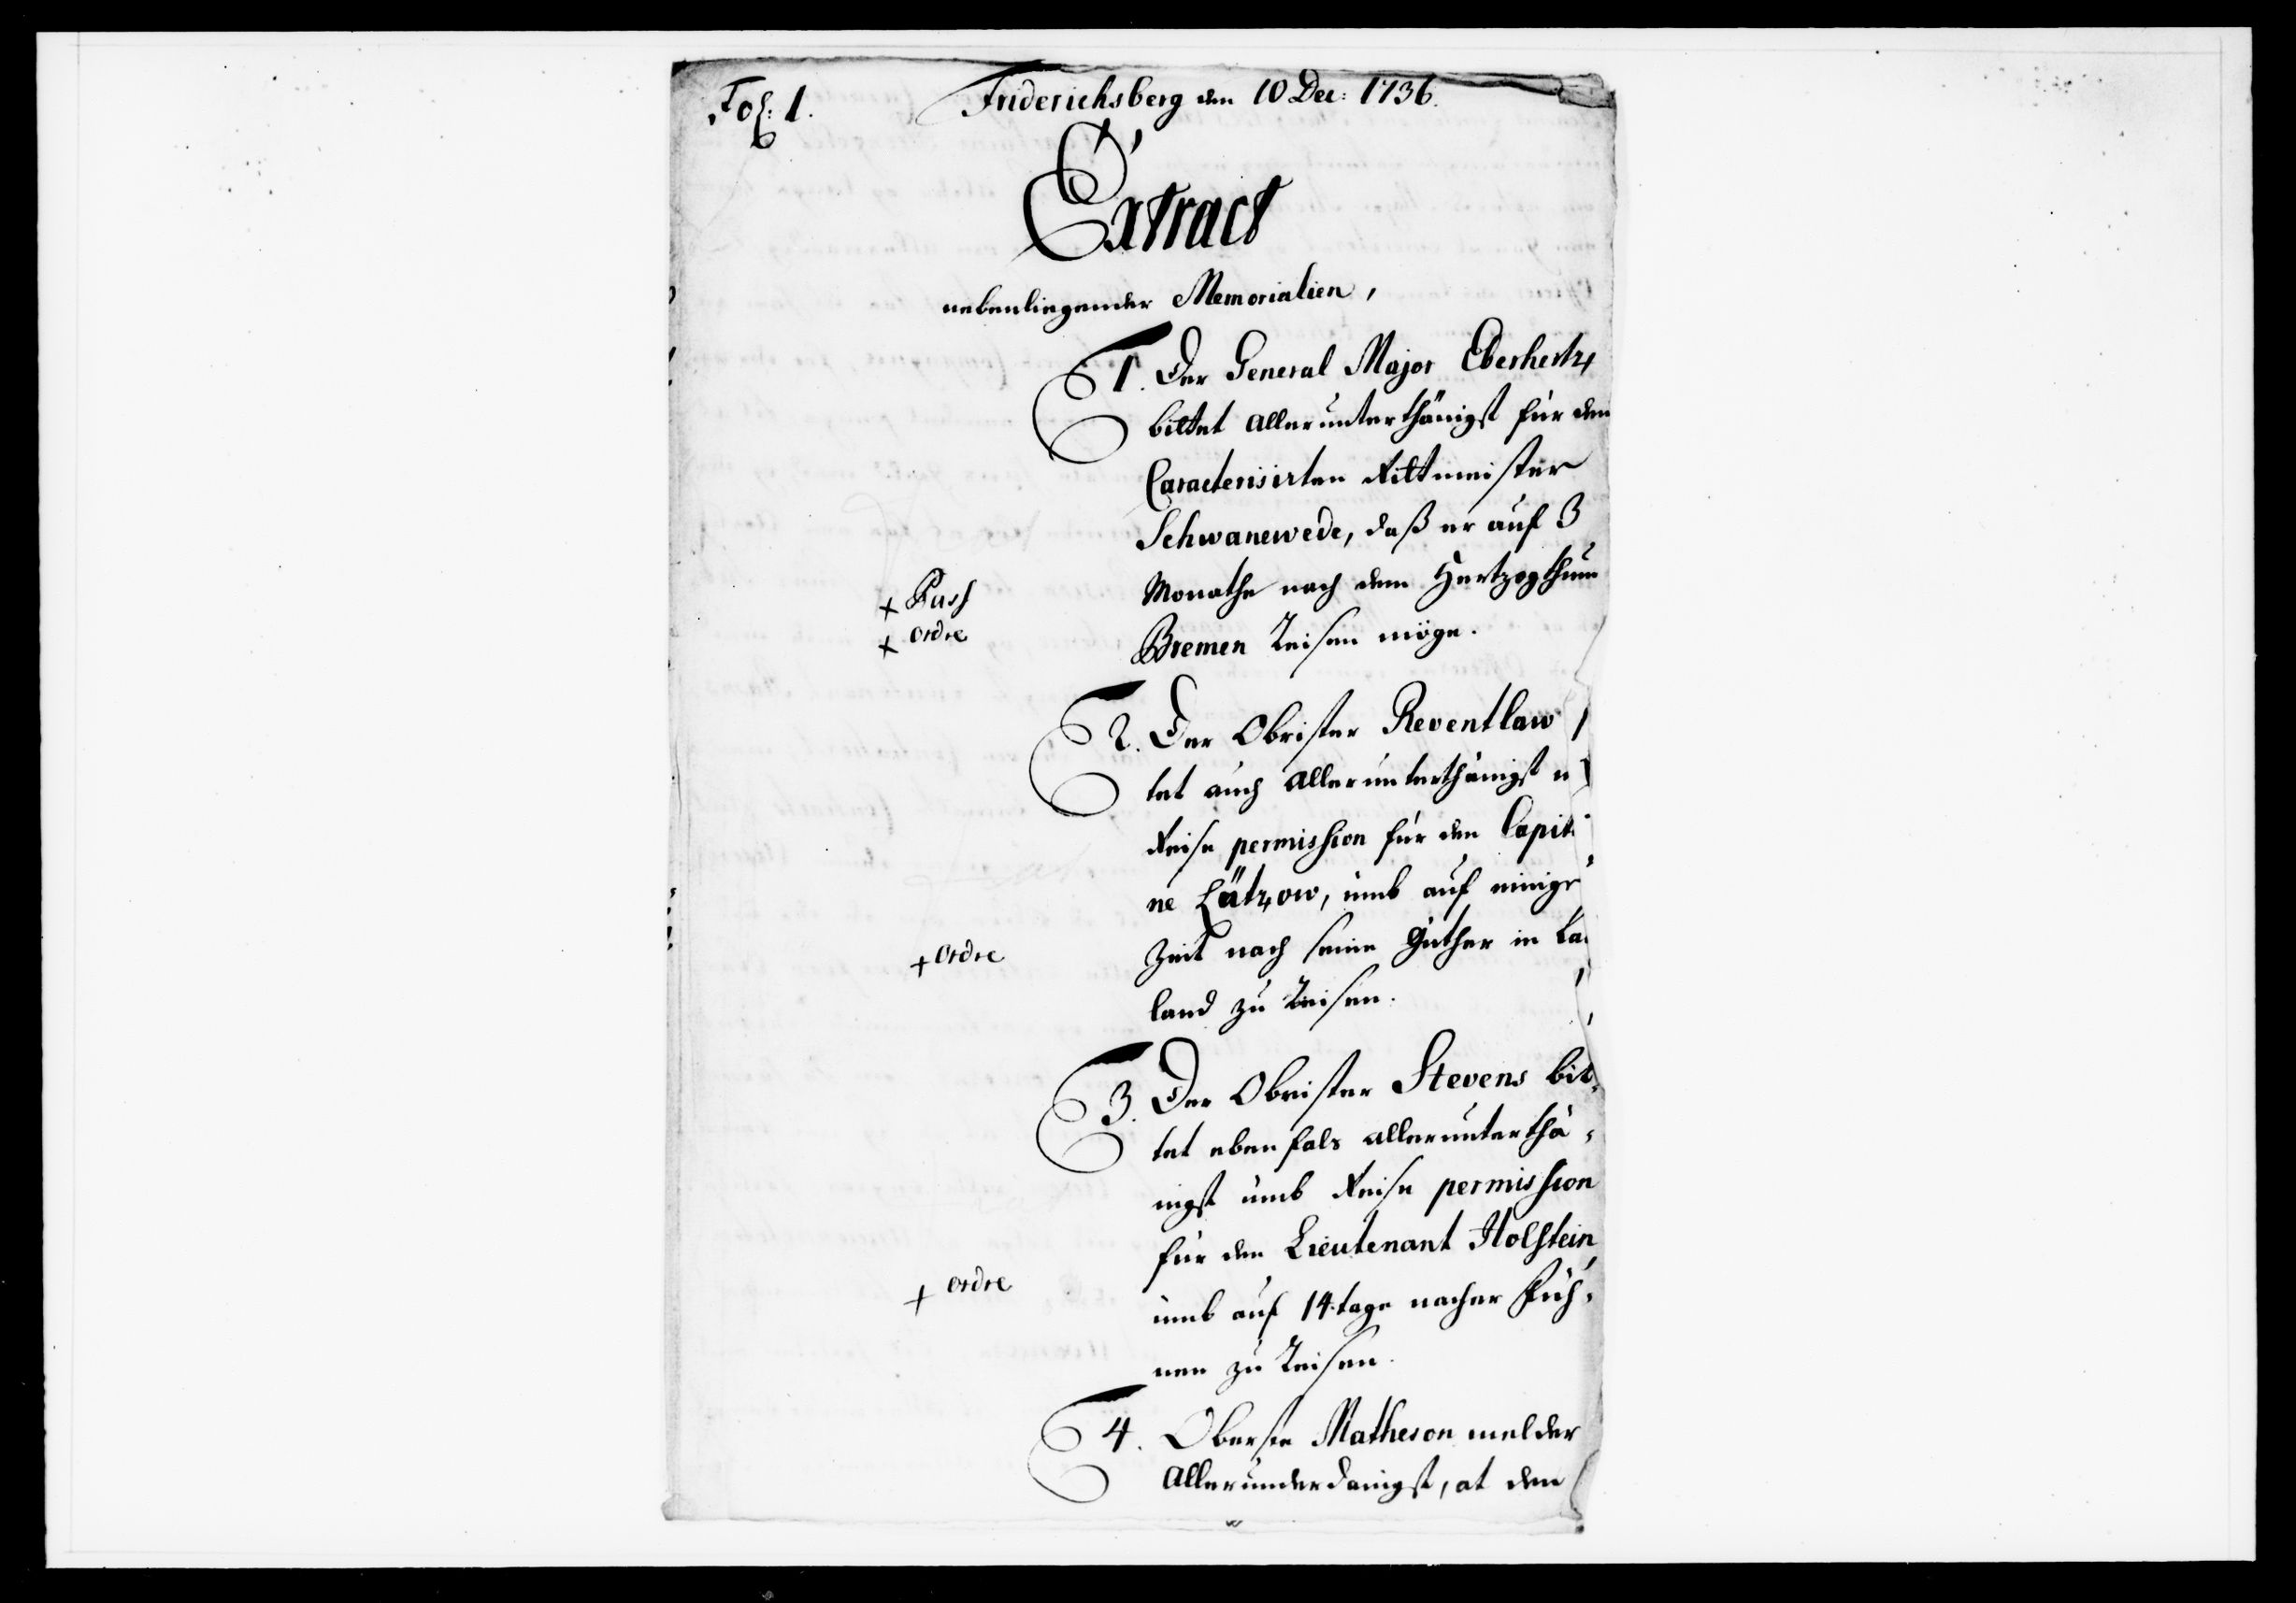 Fol: 1.
Friderichsberg den 10 Dec: 1736.
Extract
nebenliegender Memorialien,
1. Der General Major Eberhertz
bittet allerunterthänigst für den
Caracterisirten Rittmeister
Schwanewede, daß er auf 3
Monathe nach dem Hertzogthum
+ Pass
+ ordre
Bremen Reisen möge.
2. Der Obrister Reventlaw
tet auch allerunterthänigst
Reise permission für den Capit
ne Lützow, umb auf einige
+ ordre
Zeit nach seine Güther in La
land zu Reisen.
3. Der Obrister Stevens bit,
tet ebenfals allerunterthä,
nigst umb Reise permission
für den Lieutenant Holstein,
+ ordre
umb auf 14 tage nacher Füh,
nen zu Reisen.
4. Oberste Matheson melder
allerunderdanigst, at den